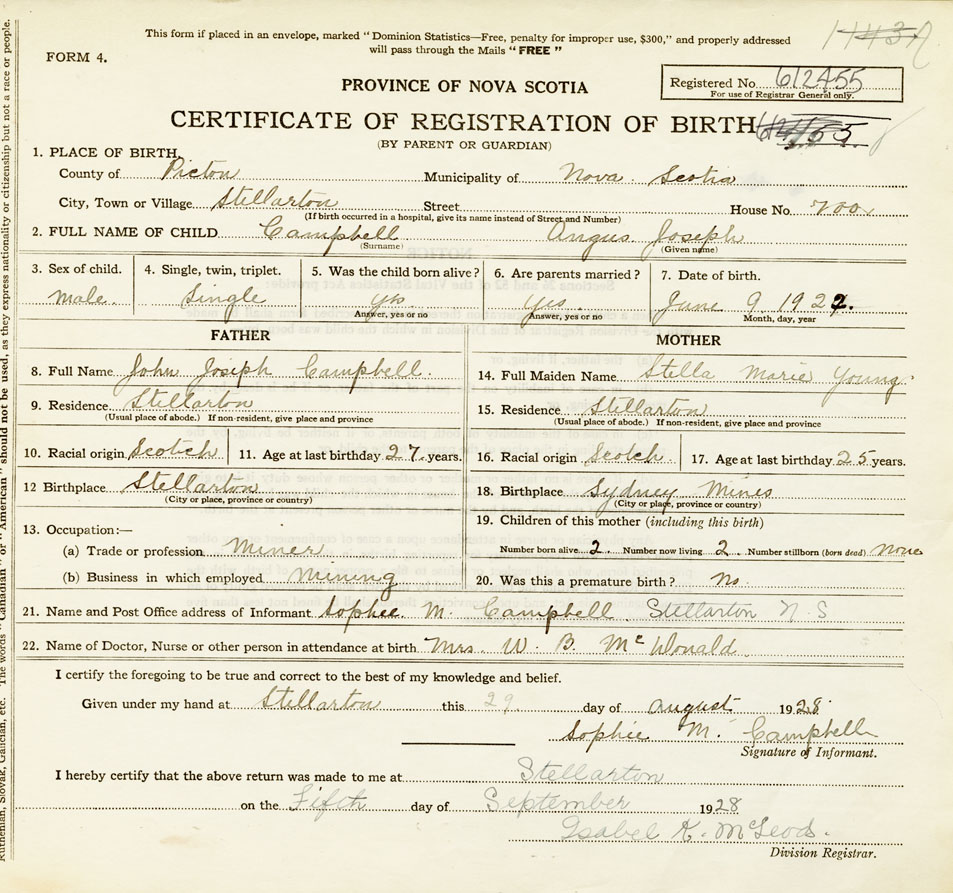 This form if placed in an envelope, marked "Dominion Statistics—Free, penalty for improper use, $300," and properly addressed
will pass through the Mails "FREE"
FORM 4.
1143A
PROVINCE OF NOVA SCOTIA
Registered No. 612455
For use of Registrar General only.
CERTIFICATE OF REGISTRATION OF BIRTH
(BY PARENT OR GUARDIAN)
1. PLACE OF BIRTH,
County of Picton Municipality of Nova Scotia
City, Town or Village Stellarton Street House No.
(If birth occurred in a hospital, give its name instead of Street and Number)
2. FULL NAME OF CHILD Campbell Angus Joseph
(Surname) (Given name)
3. Sex of child. 4. Single, twin, triplet. 5. Was the child born alive? 6. Are parents married? 7. Date of birth.
Male. Single yes yes June 9 1922.
Answer, yes or no Answer, yes or no Month, day, year
FATHER MOTHER
8. Full Name John Joseph Campbell. 14. Full Maiden Name Stella Marie Young.
9. Residence Stellarton 15. Residence Stellarton
(Usual place of abode.) If non-resident, give place and province (Usual place of abode.) If non-resident, give place and province
10. Racial origin Scotch 11. Age at last birthday 27 years. 16. Racial origin Scotch 17. Age at last birthday 25 years.
12 Birthplace Stellarton 18. Birthplace Sydney Mines
(City or place, province or country) (City or place, province or country)
13. Occupation:— 19. Children of this mother (including this birth)
(a) Trade or profession Miner Number born alive 2 Number now living 2 Number stillborn (born dead) none
(b) Business in which employed Mining 20. Was this a premature birth? no.
21. Name and Post Office address of Informant Sophie M. Campbell Stellarton N S
22. Name of Doctor, Nurse or other person in attendance at birth Mrs. W. B. McDonald
I certify the foregoing to be true and correct to the best of my knowledge and belief.
Given under my hand at Stellarton this 29 day of August 1928
Sophie M. Campbell
Signature of Informant.
I hereby certify that the above return was made to me at Stellarton
on the Fifth day of September 1928
Isabel K. McLeod.
Division Registrar.
Ruthenian, Slovak, Galician, etc. The words "Canadian" or "American" should not be used, as they express nationality or citizenship but not a race or people.